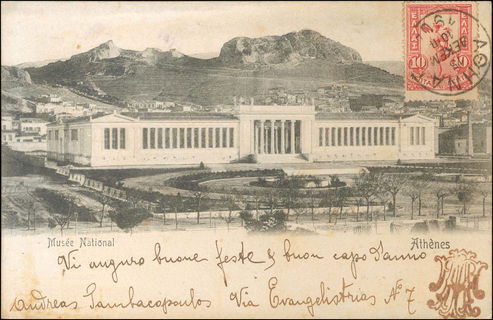 ΕΛΛΑΣ
10 10
ΑΘΗΝΑΙ
ΔΕΚΕΜ
Musée National
Athènes
Vi auguro buone feste & buon capo d'anno
Andreas Sambacopoulos Via Evangelistrias Nº 7